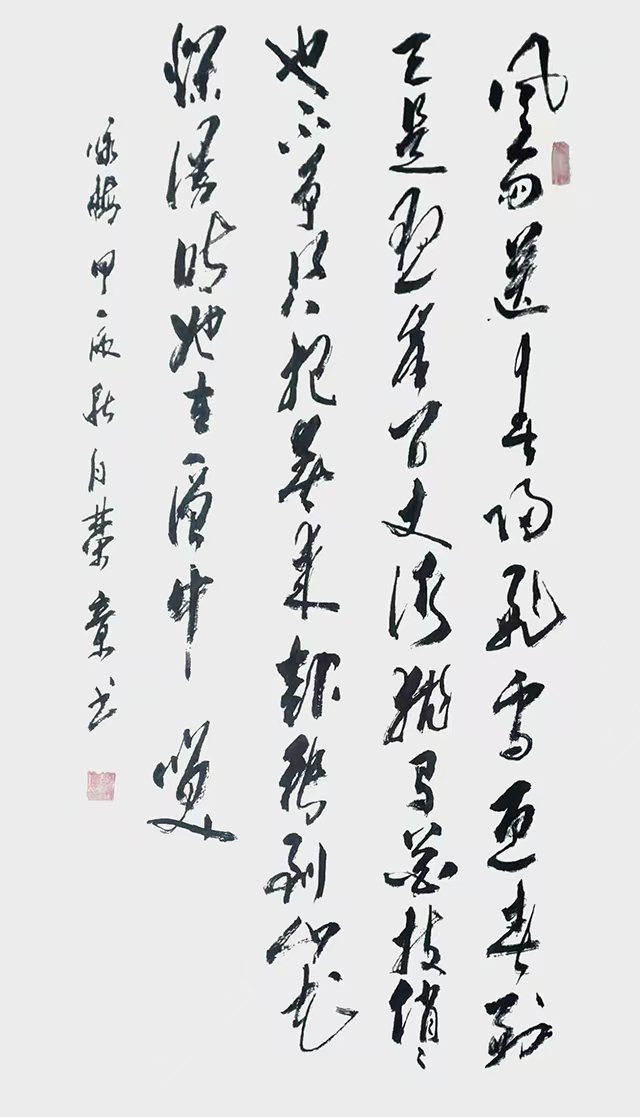 風雨送春归飛雪迎春到
已是悬崖百丈冰犹有花枝俏〻
也不争只把春来报待到山花
烂漫时她在丛中笑
咏梅 甲辰秋月荣章书